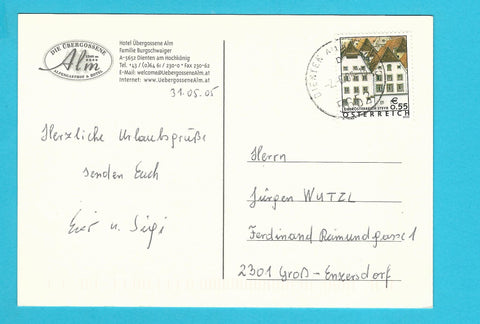 DIE ÜBERGOSSENE
Alm
Hotel Übergossene Alm
Familie Burgschwaiger
A-5652 Dienten am Hochkönig
Tel. +43 / (0)64 61 / 230-0 • Fax 230-62
E-Mail: welcome@UebergosseneAlm.at
Internet: www.UebergosseneAlm.at
31.05.05
Herzliche Urlaubsgrüße
senden Euch
u. Sigi
DIENTEN
€ 0,55
ÖSTERREICH
Herrn
Jürgen WUTZL
Ferdinand Raimundgasse 1
2301 Groß-Enzersdorf